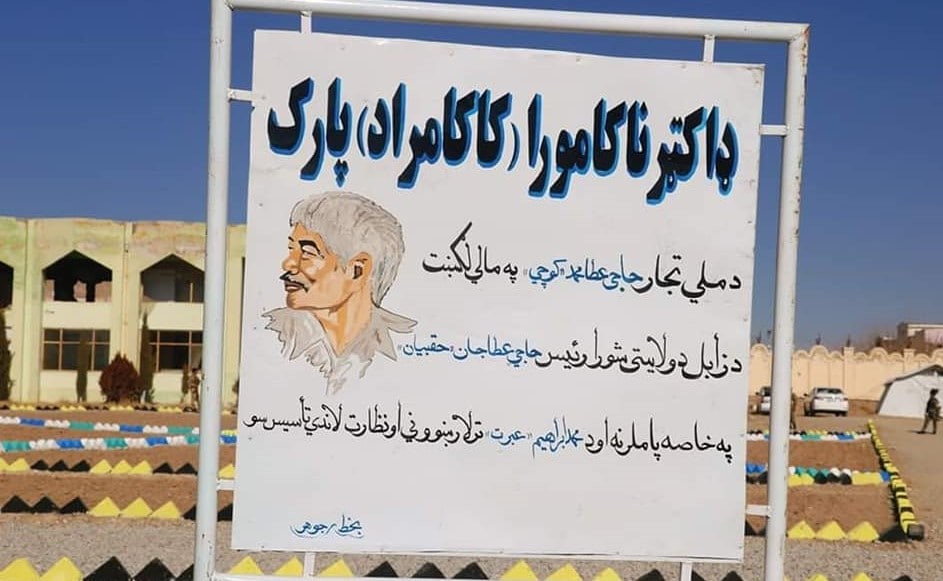 ډاکټر ناکامورا (کاکا مراد) پارک
د ملي تجار حاجي عطا محمد «کوچي» په مالي لګښت
د زابل د ولایتي شورا رئیس حاجي عطاجان «حقبیان»
په خاصه پاملرنه او د محمد ابراهیم «عبرت» تر لارښووني او نظارت لاندي تأسیس سو
بخط جوهر